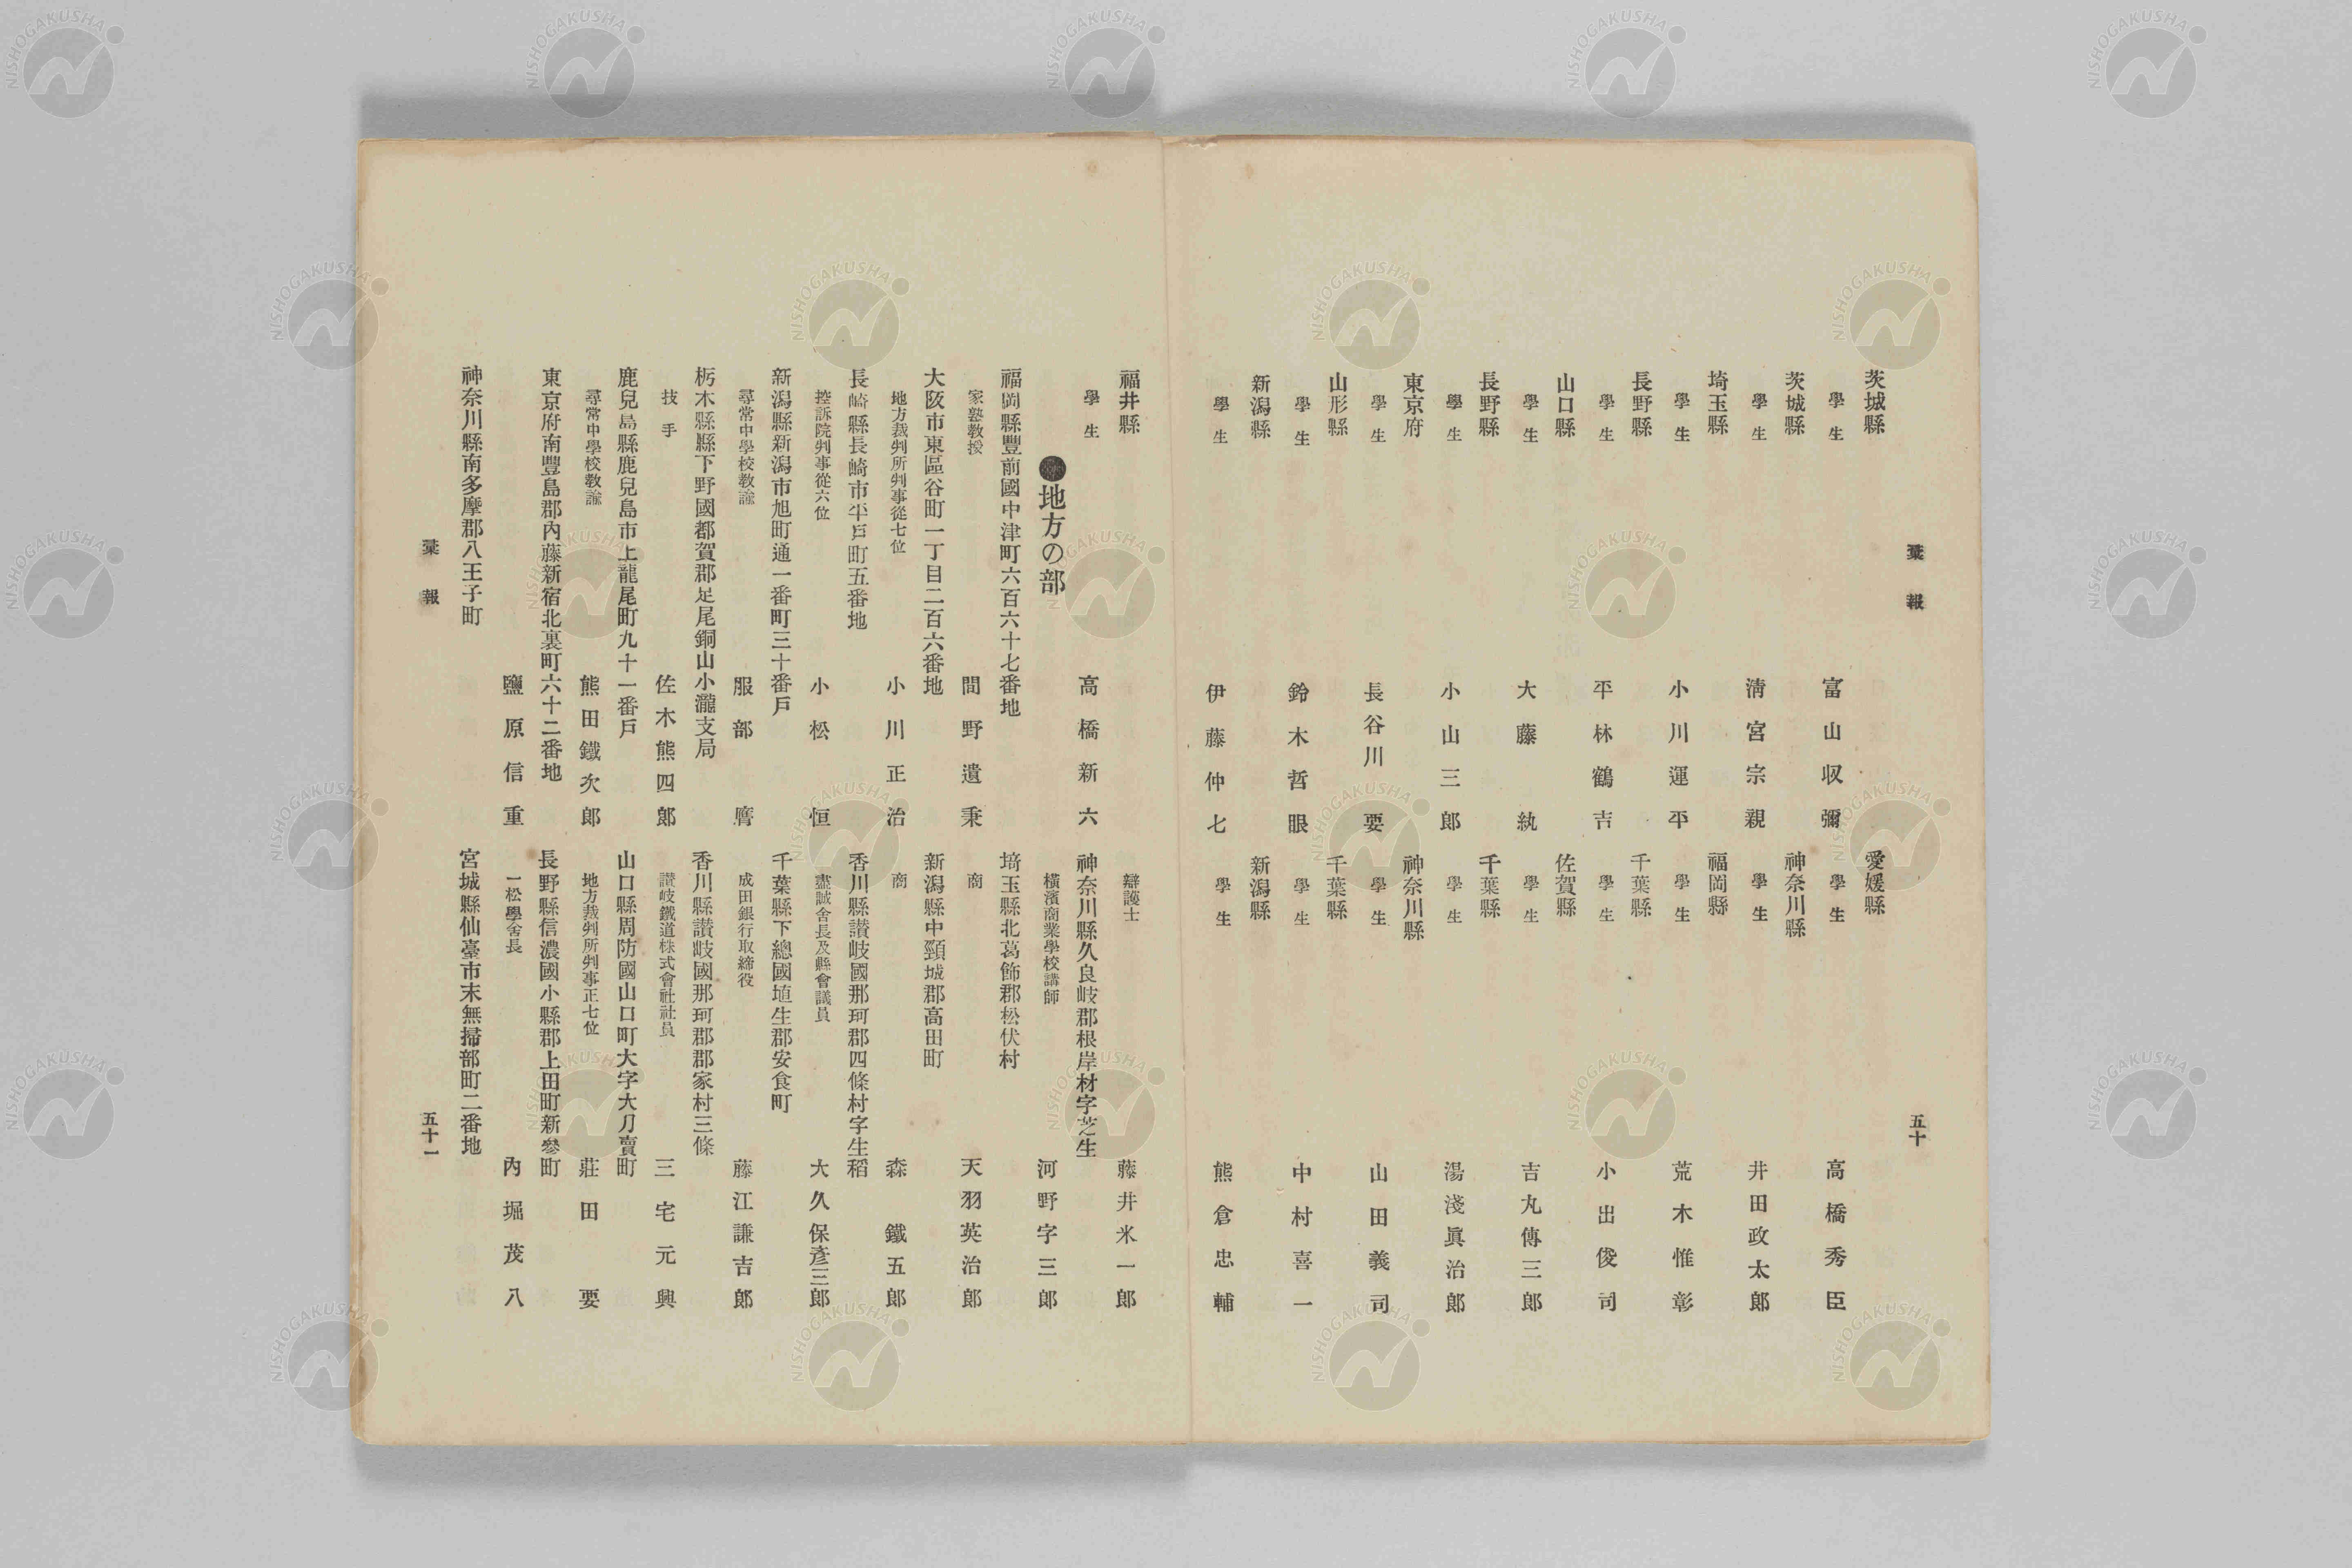 彙報
五十
茨城縣
學生
富山収彌
茨城縣
學生
淸宮宗親
埼玉縣
學生
小川運平
長野縣
學生
平林鶴吉
山口縣
學生
大藤紈
長野縣
學生
小山三郎
東京府
學生
長谷川要
山形縣
學生
鈴木哲眼
新潟縣
學生
伊藤仲七
愛媛縣
學生
高橋秀臣
神奈川縣
學生
井田政太郎
福岡縣
學生
荒木惟彰
千葉縣
學生
小出俊司
佐賀縣
學生
吉丸傳三郎
千葉縣
學生
湯淺眞治郎
神奈川縣
學生
山田義司
千葉縣
學生
中村喜一
新潟縣
學生
熊倉忠輔
福井縣
學生
高橋新六
●地方の部
福岡縣豐前國中津町六百六十七番地
家塾敎授
間野遺秉
大阪市東區谷町一丁目二百六番地
地方裁判所判事從七位
小川正治
長崎縣長崎市平戸町五番地
控訴院判事從六位
小松恒
新潟縣新潟市旭町通一番町三十番戸
尋常中學校敎諭
服部膺
栃木縣縣下野國都賀郡足尾銅山小瀧支局
技手
佐木熊四郎
鹿兒島縣鹿兒島市上龍尾町九十一番戸
尋常中學校敎諭
熊田鐵次郎
東京府南豐島郡內藤新宿北裏町六十二番地
鹽原信重
神奈川縣南多摩郡八王子町
辯護士
藤井米一郎
神奈川縣久良岐郡根岸材字芝生
橫濱商業學校講師
河野字三郎
埼玉縣北葛飾郡松伏村
商
天羽英治郎
新潟縣中頸城郡高田町
商
森鐵五郎
香川縣讃岐國那珂郡四條村字生稻
盡誠舍長及縣會議員
大久保彥三郎
千葉縣下總國埴生郡安食町
成田銀行取締役
藤江謙吉郎
香川縣讃岐國那珂郡郡家村三條
讃岐鐵道株式會社社員
三宅元興
山口縣周防國山口町大字大刀賣町
地方裁判所判事正七位
莊田要
長野縣信濃國小縣郡上田町新參町
一松學舍長
內堀茂八
宮城縣仙臺市末無掃部町二番地
彙報
五十一
NISHOGAKUSHA